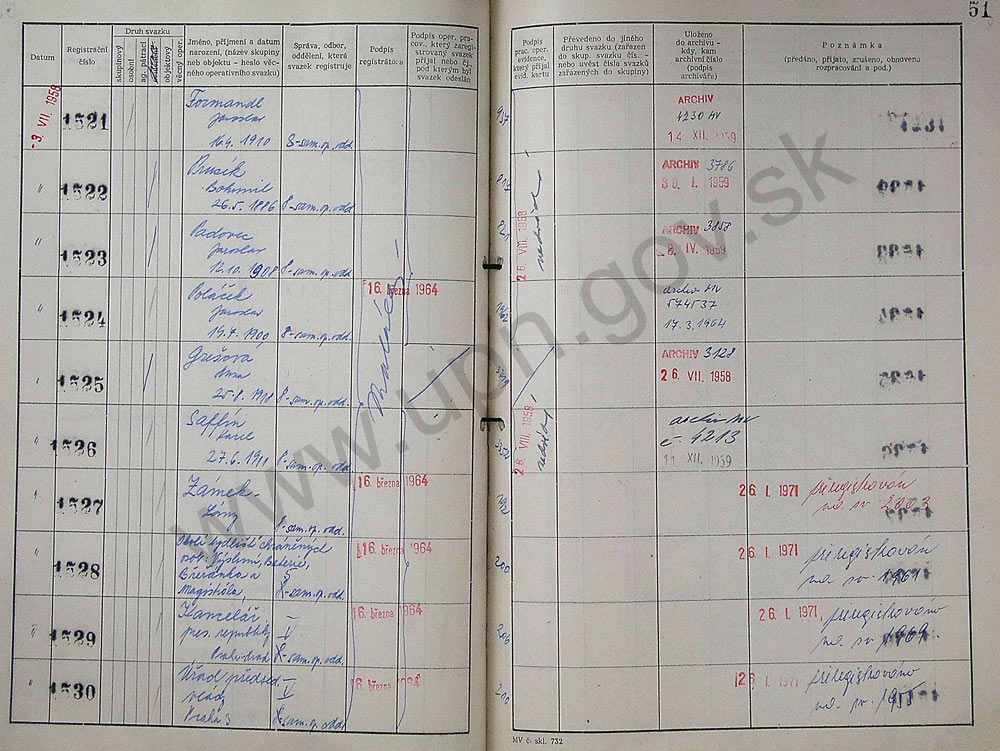 51
Datum
Registrační číslo
Druh svazku
skupinový
osobní
ag. pátrací
objektový
věcný oper.
Jméno, příjmení a datum
narození, (název skupiny
neb objektu - heslo věc-
ného operativního svazku)
Správa, odbor,
oddělení, která
svazek registruje
Podpis
registrátora
Podpis oper. pra-
cov., který zaregi-
stroval svazek
přijal nebo čj.,
pod kterým byl
svazek odeslán
Podpis
prac. oper.
evidence,
který přijal
evid. kartu
Převedeno do jiného
druhu svazku (zařazen
do skup. svazku)
nebo uvést čísla svazků
zařazených do skupiny)
Uloženo
do archivu -
kdy, kam
archivní číslo
(podpis
archiváře)
Poznámka
(předáno, přijato, zrušeno, obnoven.
rozpracování a pod.)
-3. VII. 1958
1521
Formandl
Jaroslav
16.4. 1910 8-sam.op.odd.
ARCHIV
4230 MV
14. XII. 1959
" 1522
Prusík
Bohumil
26.5. 1886 8-sam.op.odd.
26 VIII. 1958
ARCHIV 3786
30. I. 1959
" 1523
Padovec
Jaroslav
12.10. 1908 8-sam.op.odd.
ARCHIV 3858
8. IV. 1959
" 1524
Poláček
Jaroslav
19.7. 1900 8-sam.op.odd.
16. března 1964
archiv MV
574537
17.3.1964
" 1525
Grešova
Anna
25.8. 1918 8-sam.op.odd.
ARCHIV 3128
26. VII. 1958
" 1526
Saffín
Karel
27.6. 1911 8-sam.op.odd.
26 VIII. 1958
archiv MV
č. 4213
11. XII. 1959
" 1527
Zámek
Lány
8-sam.op.odd.
16. března 1964
26. I. 1971 přeregistrován
na sv. 2003
" 1528
Okolí bydlišť chráněných
osob:
Břežánka a
Magistrála,
8-sam.op.odd.
16. března 1964
26. I. 1971 přeregistrován
na sv. 1961
" 1529
Kancelář
pres. republiky
Praha-hrad 8-sam.op.odd.
16. března 1964
26. I. 1971 přeregistrováno
na sv. 1969.
" 1530
Úřad předsed.
vlády
Praha 3 8-sam.op.odd.
16. března 1964
26. I. 1971 přeregistrováno
na sv.
MV č. skl. 732
www.upn.gov.sk